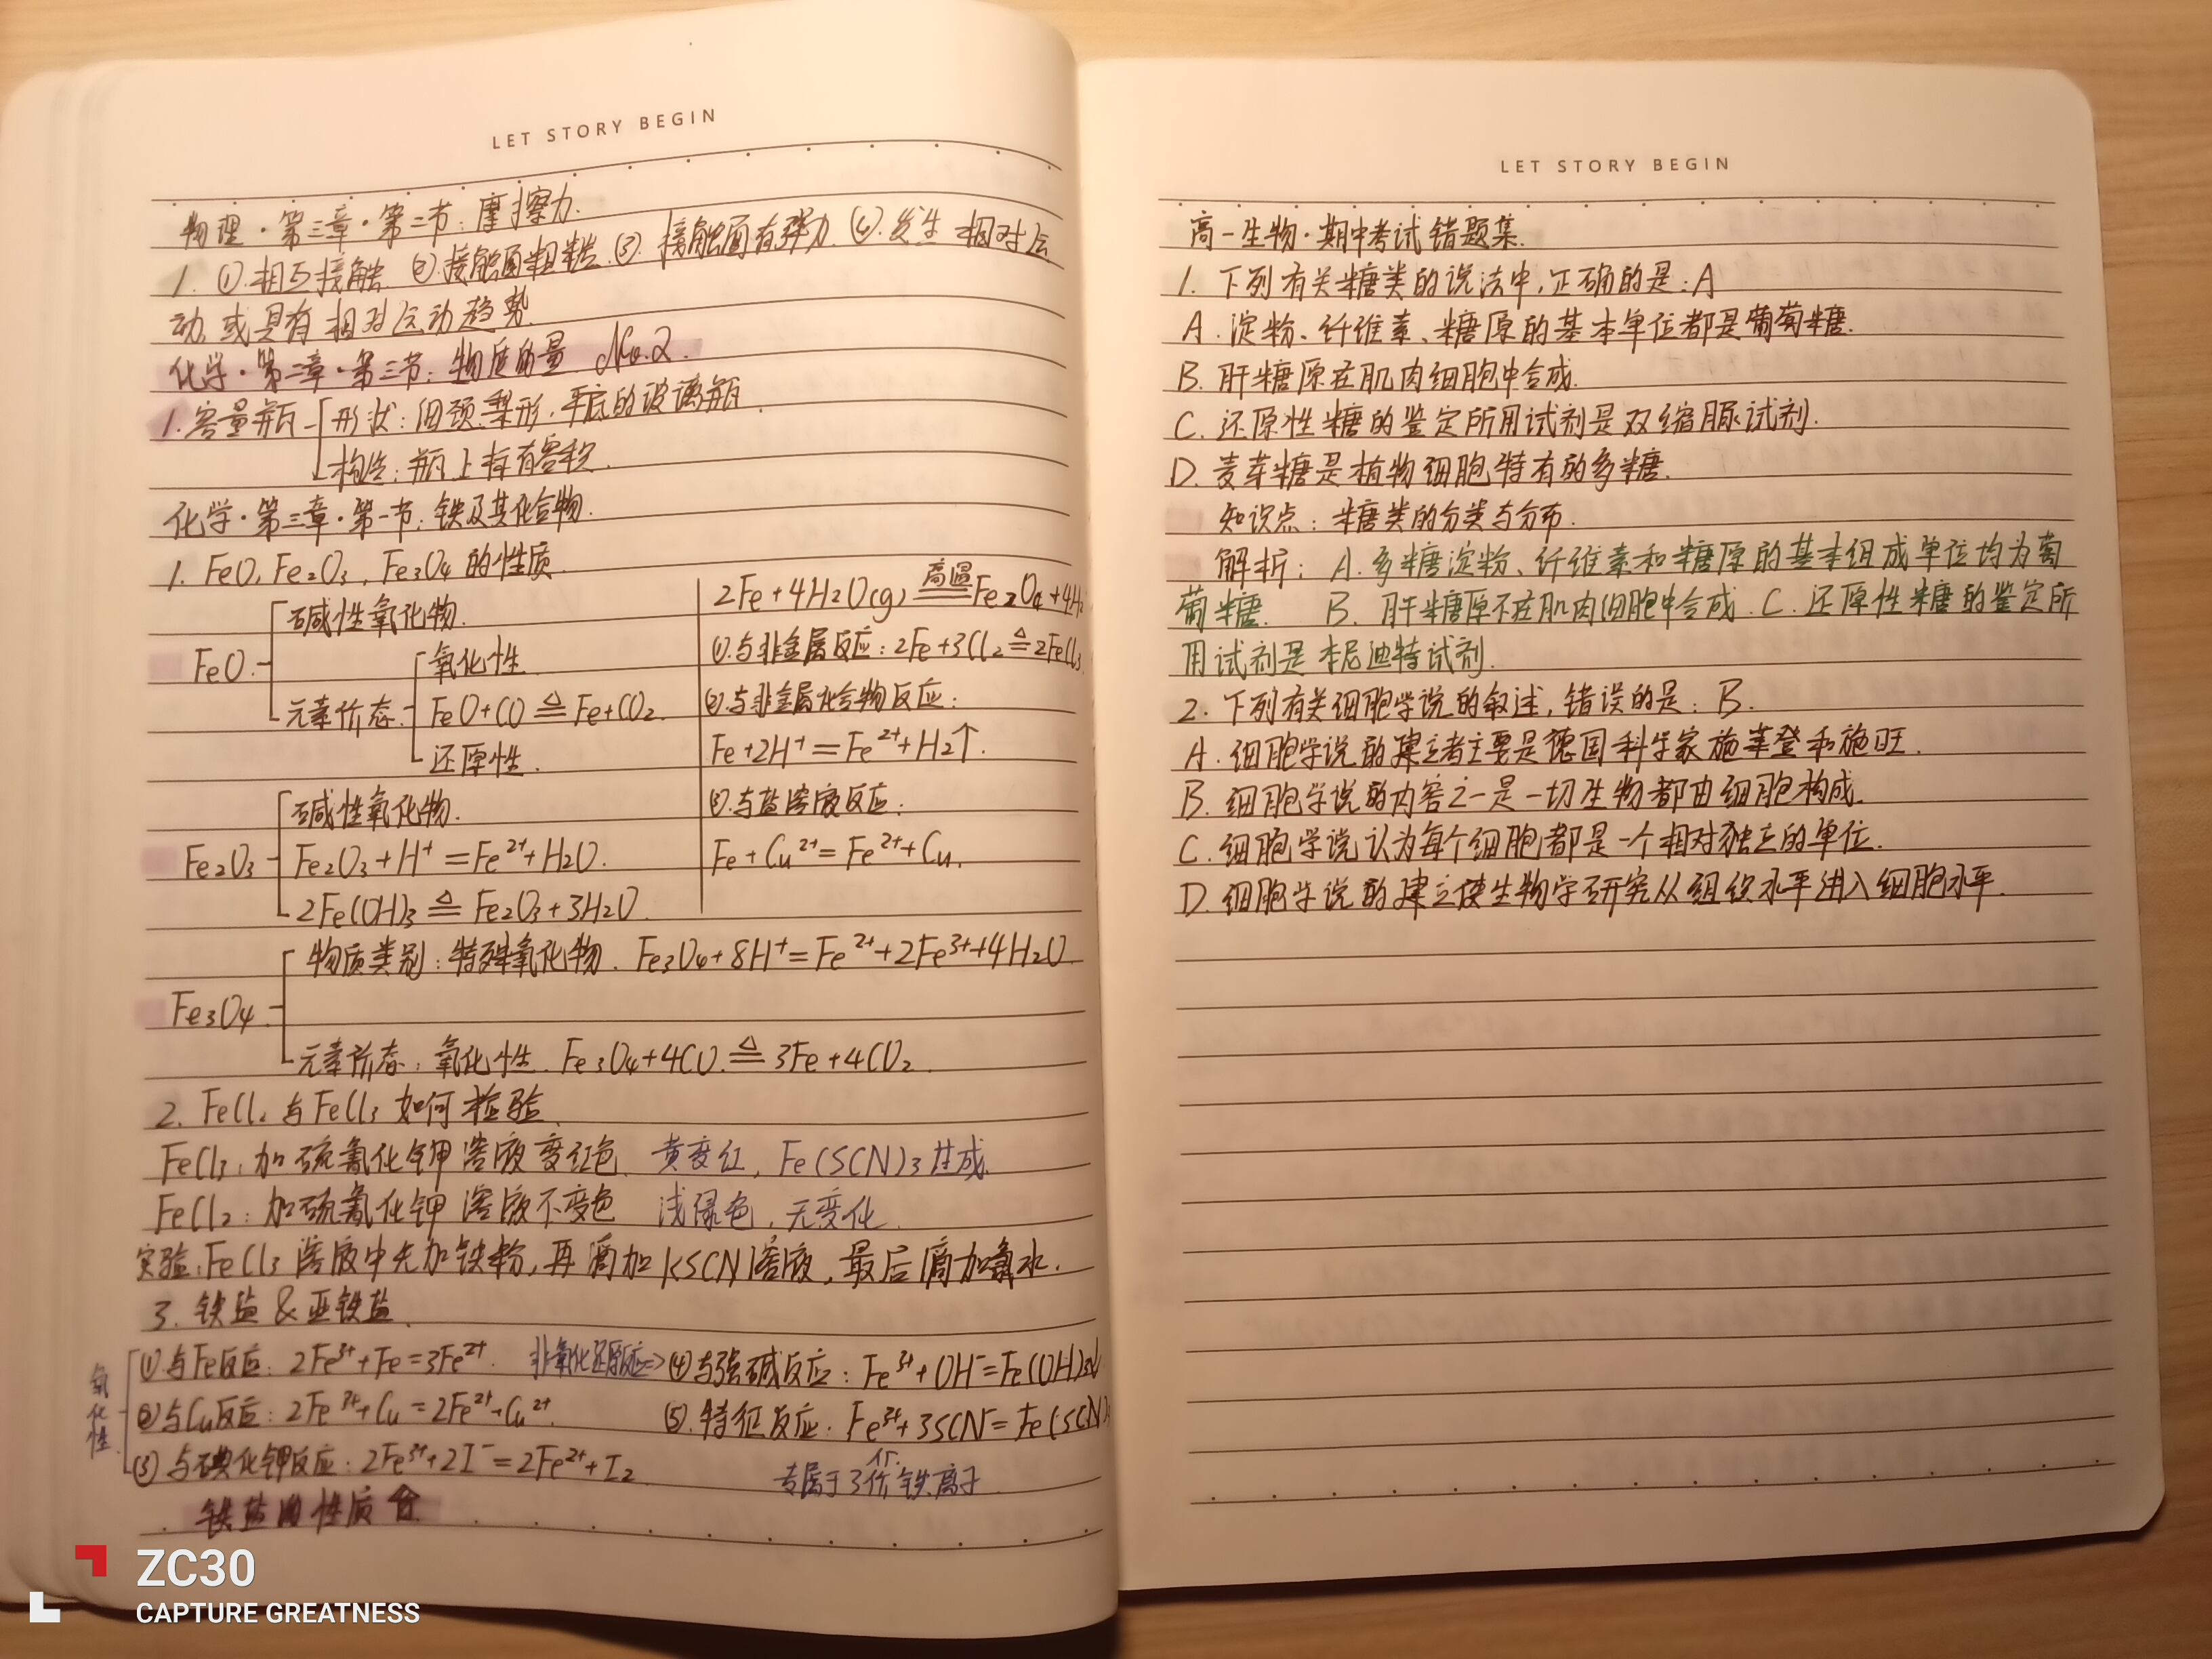 LET STORY BEGIN
物理·第三章·第二节:摩擦力.
1. ①.相互接触 ②.接触面粗糙.③.接触面有弹力.④.发生相对运
动,或具有相对运动趋势.
化学·第二章·第三节:物质的量 No.2.
1.容量瓶 形状:细颈.梨形,平底的玻璃瓶.
构造:瓶上标有容积.
化学·第三章·第一节:铁及其化合物.
1. FeO, Fe₂O₃, Fe₃O₄的性质.
FeO
碱性氧化物.
元素价态
氧化性
FeO+CO ≜ Fe+CO₂.
还原性.
Fe₂O₃
碱性氧化物.
Fe₂O₃+H⁺=Fe²⁺+H₂O.
2Fe(OH)₃ ≜ Fe₂O₃+3H₂O.
2Fe+4H₂O(g) 高温 Fe₂O₄+4H₂
①.与非金属反应:2Fe+3Cl₂ ≜ 2FeCl₃
②.与非金属化合物反应:
Fe+2H⁺=Fe²⁺+H₂↑.
③.与盐溶液反应:
Fe+Cu²⁺=Fe²⁺+Cu.
Fe₃O₄
物质类别:特殊氧化物. Fe₃O₄+8H⁺=Fe²⁺+2Fe³⁺+4H₂O
元素价态:氧化性. Fe₃O₄+4CO ≜ 3Fe+4CO₂.
2. FeCl₂与FeCl₃如何检验.
FeCl₃:加硫氰化钾溶液变红色. 黄变红, Fe(SCN)₃生成.
FeCl₂:加硫氰化钾溶液不变色 浅绿色,无变化.
实验:FeCl₃溶液中先加铁粉,再滴加KSCN溶液,最后滴加氯水.
3. 铁盐&亚铁盐.
氧化性
①与Fe反应:2Fe³⁺+Fe=3Fe²⁺. 非氧化还原反应=> ④与强碱反应:Fe³⁺+OH⁻=Fe(OH)₃↓
②与Cu反应:2Fe³⁺+Cu=2Fe²⁺+Cu²⁺. ⑤.特征反应:Fe³⁺+3SCN⁻=Fe(SCN)₃
③与碘化钾反应:2Fe³⁺+2I⁻=2Fe²⁺+I₂ 专属于3价铁离子
铁盐的性质
LET STORY BEGIN
高一生物·期中考试错题集.
1. 下列有关糖类的说法中,正确的是:A
A.淀粉、纤维素、糖原的基本单位都是葡萄糖.
B.肝糖原在肌肉细胞中合成.
C.还原性糖的鉴定所用试剂是双缩脲试剂.
D.麦芽糖是植物细胞特有的多糖.
知识点:糖类的分类与分布.
解析:A.多糖淀粉、纤维素和糖原的基本组成单位均为萄
萄糖. B.肝糖原不在肌肉细胞中合成.C.还原性糖的鉴定所
用试剂是本尼迪特试剂.
2. 下列有关细胞学说的叙述,错误的是:B.
A.细胞学说的建立者主要是德国科学家施莱登和施旺.
B.细胞学说的内容之一是一切生物都由细胞构成.
C.细胞学说认为每个细胞都是一个相对独立的单位.
D.细胞学说的建立使生物学研究从组织水平进入细胞水平.
ZC30
CAPTURE GREATNESS